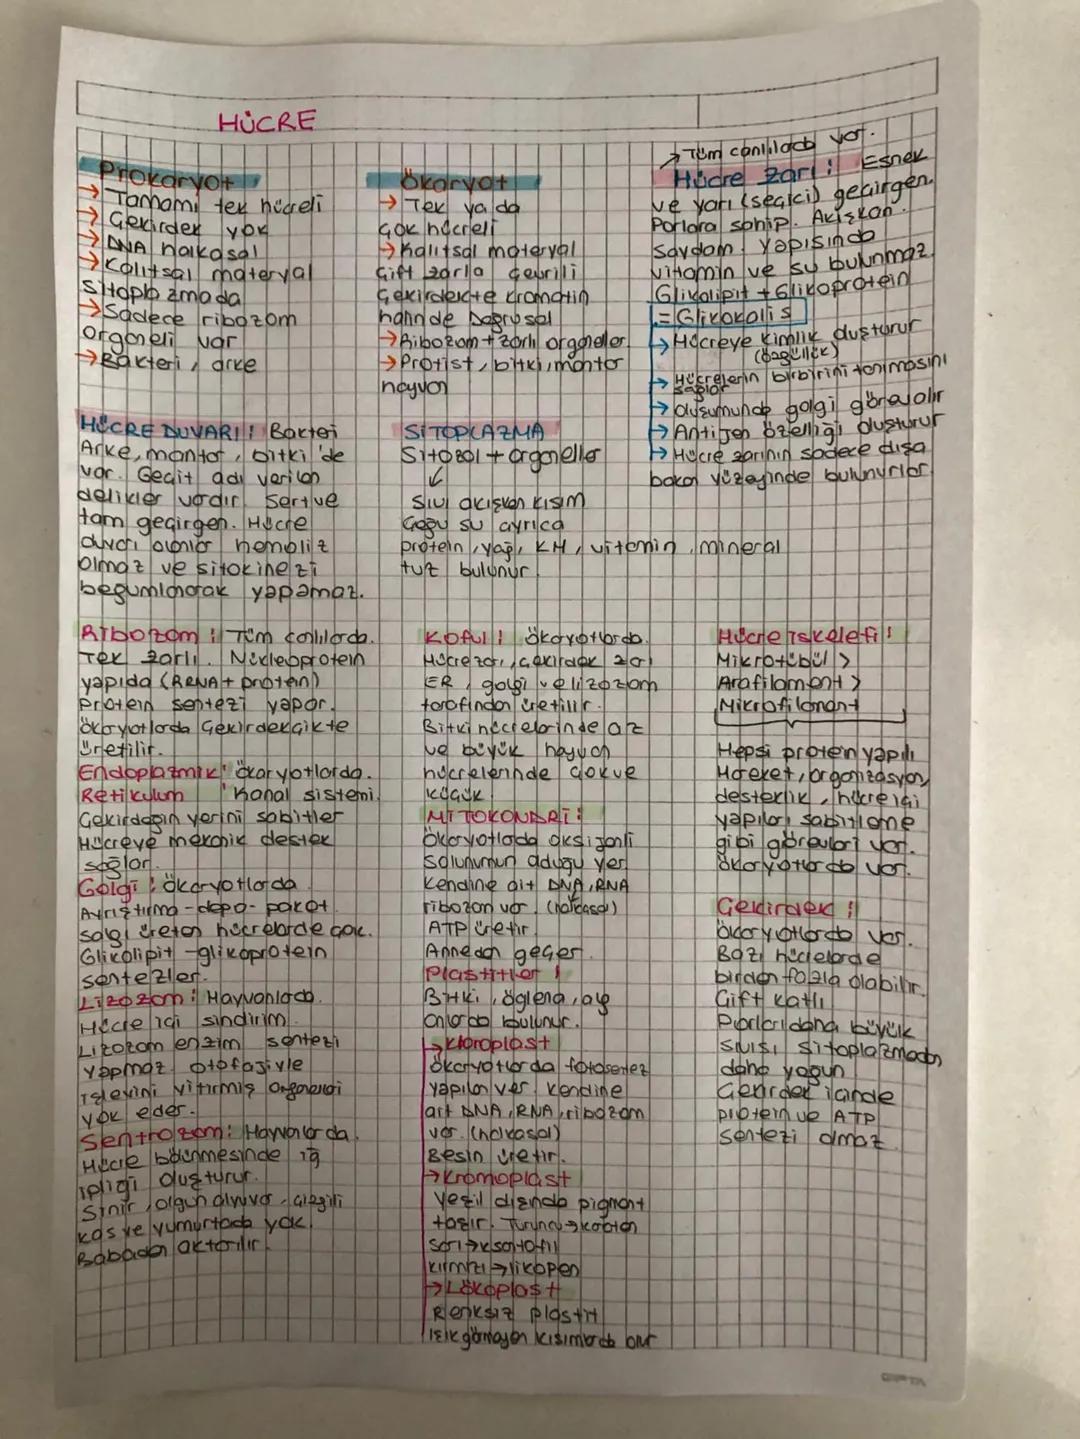 HÜCRE
Prokaryot
→ Tamamı tek hücreli
→ Çekirdek yok
→ DNA halkasal
→ Kalıtsal materyal
sitoplazmada
→ Sadece ribozom
organeli var
→ Bakteri, arke
Ökaryot
→ Tek ya da
çok hücreli
→ Kalıtsal materyal
çift zarla çevrili
çekirdekte kromatin
halinde Doğrusal
→ Ribozom + zarlı organeller
→ Protist, bitki, mantar
hayvan
→ Tüm canlılarda var.
Hücre zarı: Esnek
ve yarı (seçici) geçirgen.
Porlara sahip. Akışkan.
Saydam yapısında
vitamin ve su bulunmaz
Glikolipit + Glikoprotein
= Glikokaliks
→ Hücreye kimlik oluşturur
(özgüllük)
→ Hücrelerin birbirini tanımasını
sağlar
→ oluşumunda golgi görev alır
→ Antijen özelliği oluşturur
→ Hücre zarının sadece dışa
bakan yüzeyinde bulunurlar
HÜCRE DUVARI: Bakteri
Arke, mantar, bitki'de
var. Geçit adı verilen
delikler vardır. Sert ve
tam geçirgen. Hücre
duvarı olanlar hemoliz
olmaz ve sitokinezi
boğumlanarak yapamaz.
SİTOPLAZMA
Sitozol + organeller
↓
Sıvı akışkan kısım
Çoğu su ayrıca
protein, yağ, KH, vitamin, mineral
tuz bulunur.
Ribozom: Tüm canlılarda.
Tek zarlı. Nükleoprotein
yapıda (RRNA + protein)
Protein sentezi yapar.
Ökaryotlarda Çekirdekçikte
üretilir.
Endoplazmik: ökaryotlarda.
Retikulum: Kanal sistemi.
Çekirdeğin yerini sabitler
Hücreye mekanik destek
sağlar.
Golgi: ökaryotlarda
Ayrıştırma - depo - paket
salgı üreten hücrelerde çok.
Glikolipit - glikoprotein
sentezler.
Lizozom: Hayvanlarda.
Hücre içi sindirim.
Lizozom enzim sentezi
yapmaz otofajiyle
işlevini yitirmiş organeli
yok eder.
Sentrozom: Hayvanlarda.
Hücre bölünmesinde iğ
ipliği oluşturur.
Sinir, olgun alyuvar, çizgili
kas ve yumurtada yok.
Babadan aktarılır.
Koful: ökaryotlarda.
Hücre zarı, çekirdek zarı
ER, golgi ve lizozom
tarafından üretilir.
Bitki hücrelerinde az
ve büyük hayvan
hücrelerinde çok ve
küçük
MİTOKONDRİ:
Ökaryotlarda oksijenli
solunumun olduğu yer
Kendine ait DNA, RNA
ribozom var. (halkasal)
ATP üretir.
Anneden geçer.
Plastitler:
Bitki, öglena, alg
onlarda bulunur.
→ Kloroplast
ökaryotlarda fotosentez
yapılan yer. Kendine
ait DNA, RNA, ribozom
var. (halkasal)
Besin üretir.
→ Kromoplast
Yeşil dışında pigment
taşır. Turuncu → karoten
Sarı → ksantofil
kırmızı → likopen
→ Lökoplast
Renksiz plastit
Işık görmeyen kısımlarda olur
Hücre iskeleti:
Mikrotübül >
Arafilament >
Mikrofilament
Hepsi protein yapılı
Hareket, organizasyon,
desteklik, hücre içi
yapıları sabitleme
gibi görevleri var.
ökaryotlarda var.
Çekirdek:
ökaryotlarda var.
Bazı hücrelerde
birden fazla olabilir.
Çift katlı
Porları daha büyük
Sıvısı sitoplazmadan
daha yoğun
Çekirdek içinde
protein ve ATP
sentezi olmaz.
GIPTA